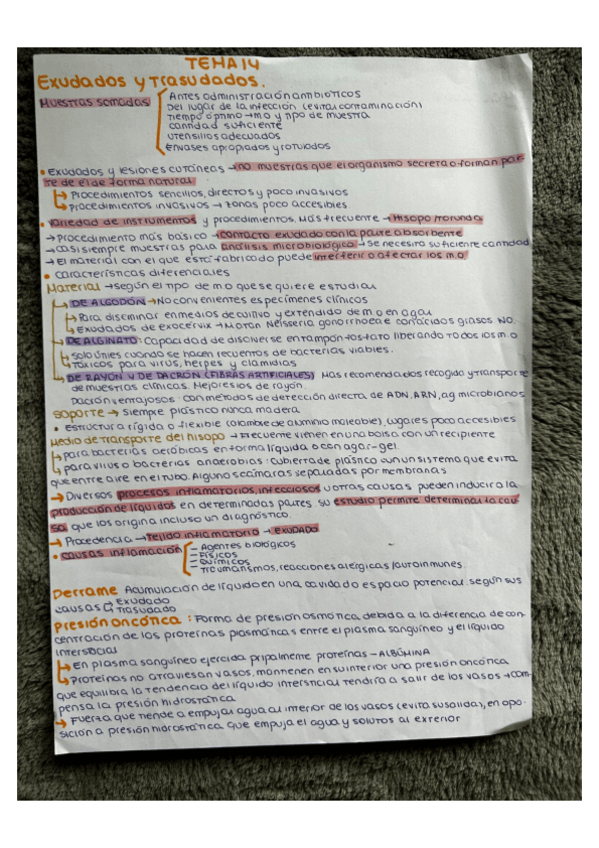 TEMA 14
Exudados y Trasudados.
Muestras tomadas
Antes administración antibióticos
Del lugar de la infección (evita contaminación)
Tiempo óptimo → mo y tipo de muestra
Cantidad suficiente
Utensilios adecuados
Envases apropiados y rotulados
• Exudados y lesiones cutáneas → no muestras que el organismo secreta o forman par
te de él de forma natural
↳ Procedimientos sencillos, directos y poco invasivos
↳ Procedimientos invasivos → zonas poco accesibles.
• Variedad de instrumentos y procedimientos. Más frecuente → Hisopo/torunda
→ Procedimiento más básico → contacto exudado con la parte absorbente
→ Casi siempre muestras para análisis microbiológico → se necesita suficiente cantidad
→ El material con el que está fabricado puede interferir o afectar los m.o
• Características diferenciales
Material → según el tipo de mo que se quiere estudiar
DE ALGODÓN → No convenientes especímenes clínicos
↳ Para diseminar en medios de cultivo y extendido de mo en agar
↳ Exudados de exocérvix → Matan Neisseria gonorrhoeae con ácidos grasos NO.
DE ALGINATO: Capacidad de disolverse en tampón fosfato liberando todos los m.o
↳ solo útiles cuando se hacen recuentos de bacterias viables.
↳ Tóxicos para virus, herpes y clamidias
DE RAYÓN Y DE DACRÓN (FIBRAS ARTIFICIALES) Mas recomendados recogida y transporte
de muestras clínicas. Mejores los de rayón.
Dacrón ventajosos: con métodos de detección directa de ADN, ARN, ag microbianos
Soporte → Siempre plástico nunca madera
• Estructura rígida o flexible (alambre de aluminio maleable), lugares poco accesibles
Medio de transporte del hisopo → Frecuente vienen en una bolsa con un recipiente
↳ para bacterias aeróbicas en forma líquida o con agar-gel.
↳ para virus o bacterias anaerobias: cubierta de plástico con un sistema que evita
que entre aire en el tubo. Algunos cámaras separadas por membranas
→ Diversos procesos inflamatorios, infecciosos u otras causas pueden inducir a la
producción de líquidos en determinadas partes su estudio permite determinar la cau
sa que los origina incluso un diagnóstico.
→ Procedencia → Tejido inflamatorio → EXUDADO
• Causas inflamación
– Agentes biológicos
– Físicos
– Químicos
– Traumatismos, reacciones alérgicas/autoinmunes.
Derrame Acumulación de líquido en una cavidad o espacio potencial. según sus
causas
Exudado
Trasudado
Presión oncótica: Forma de presión osmótica debida a la diferencia de con
centración de las proteínas plasmáticas entre el plasma sanguíneo y el líquido
intersticial
↳ En plasma sanguíneo ejercida pripalmente proteínas – ALBÚMINA
↳ Proteínas no atraviesan vasos, mantienen en su interior una presión oncótica
que equilibra la tendencia del líquido intersticial tendría a salir de los vasos → com
pensa la presión hidrostática
→ Fuerza que tiende a empujar agua al interior de los vasos (evita su salida), en opo
sición a presión hidrostática que empuja el agua y solutos al exterior